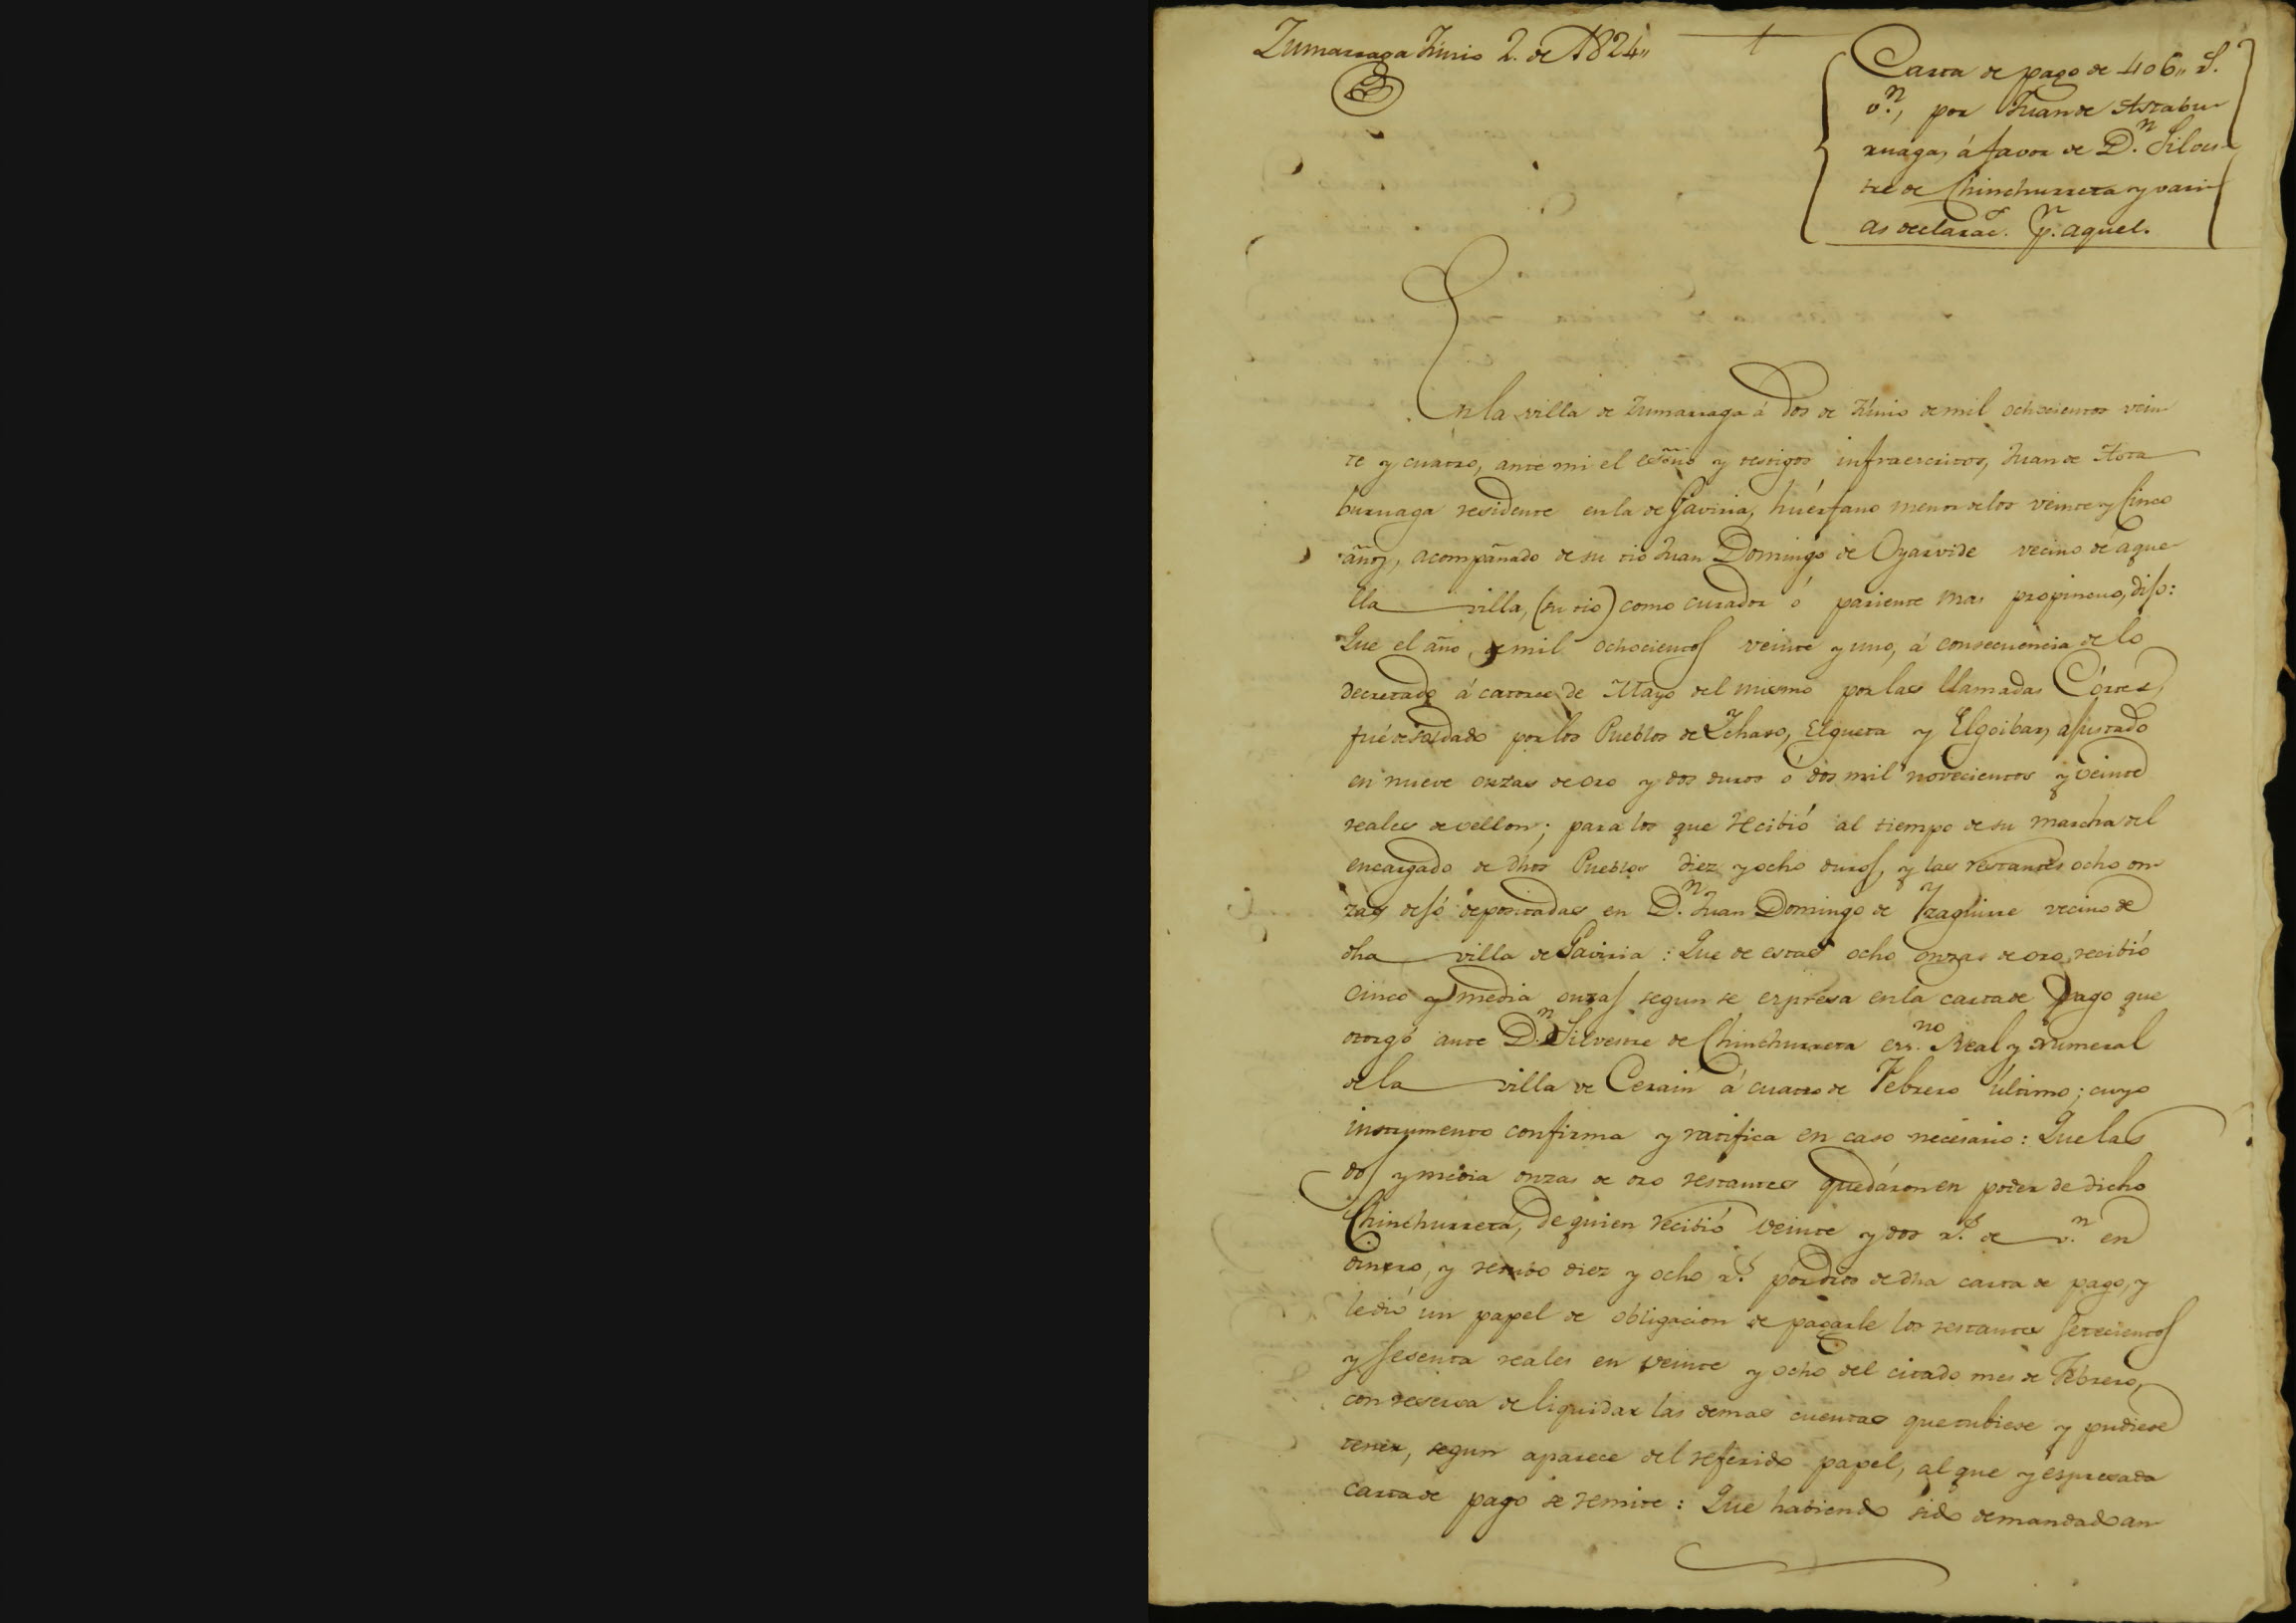 Zumarraga Junio 2. de 1824,,
Carta de pago de 406,, r.s
v.n, por Juan de Astabu-
ruaga, á favor de D.n Silves-
tre de Chinchurreta y vari-
as declarac.s p.r aquel.
En la villa de Zumarraga á dos de Junio de mil ochocientos vein-
te y cuatro, ante mi el esc̃no y testigos infraescritos, Juan de Asta
buruaga residente en la de Gaviria, huérfano menor de los veinte y Cinco
años, acompañado de su tio Juan Domingo de Oyarvide vecino de aque-
lla villa, (su tio) como curador ó pariente mas propincuo, dijo:
Que el año de mil ochocientos veinte y uno, á consecuencia de lo
decretado á catorce de Mayo del mismo por las llamadas Córtes,
fué de soldado por los Pueblos de Ichaso, Elgueta y Elgoibar, ajustado
en nueve onzas de oro y dos duros ó dos mil novecientos y veinte
reales de vellon; para los que recibió al tiempo de su marcha del
encargado de dhos Pueblos diez y ocho duros, y las restantes ocho on-
zas dejó depositadas en D.n Juan Domingo de Yzaguirre vecino de
dha villa de Gaviria: Que de estas ocho onzas de oro, recibió
cinco y media onzas segun se expresa en la carta de pago que
otorgó ante D.n Silvestre de Chinchurreta ess.no Real y Numeral
de la villa de Cerain á cuatro de Febrero último; cuyo
instrumento confirma y ratifica en caso necesario: Que las
dos y media onzas de oro restantes quedáron en poder de dicho
Chinchurreta, de quien recibió veinte y dos r.s de v.n en
dinero, y retubo diez y ocho r.s por dros de dha carta de pago, y
le dió un papel de obligacion de pagarle los restantes setecientos
y sesenta reales en veinte y ocho del citado mes de Febrero,
con reserva de liquidar las demas cuentas que tubiese y pudiese
tener, segun aparece del referido papel, al que y espresada
carta de pago se remite: Que habiendo sido demandado an-